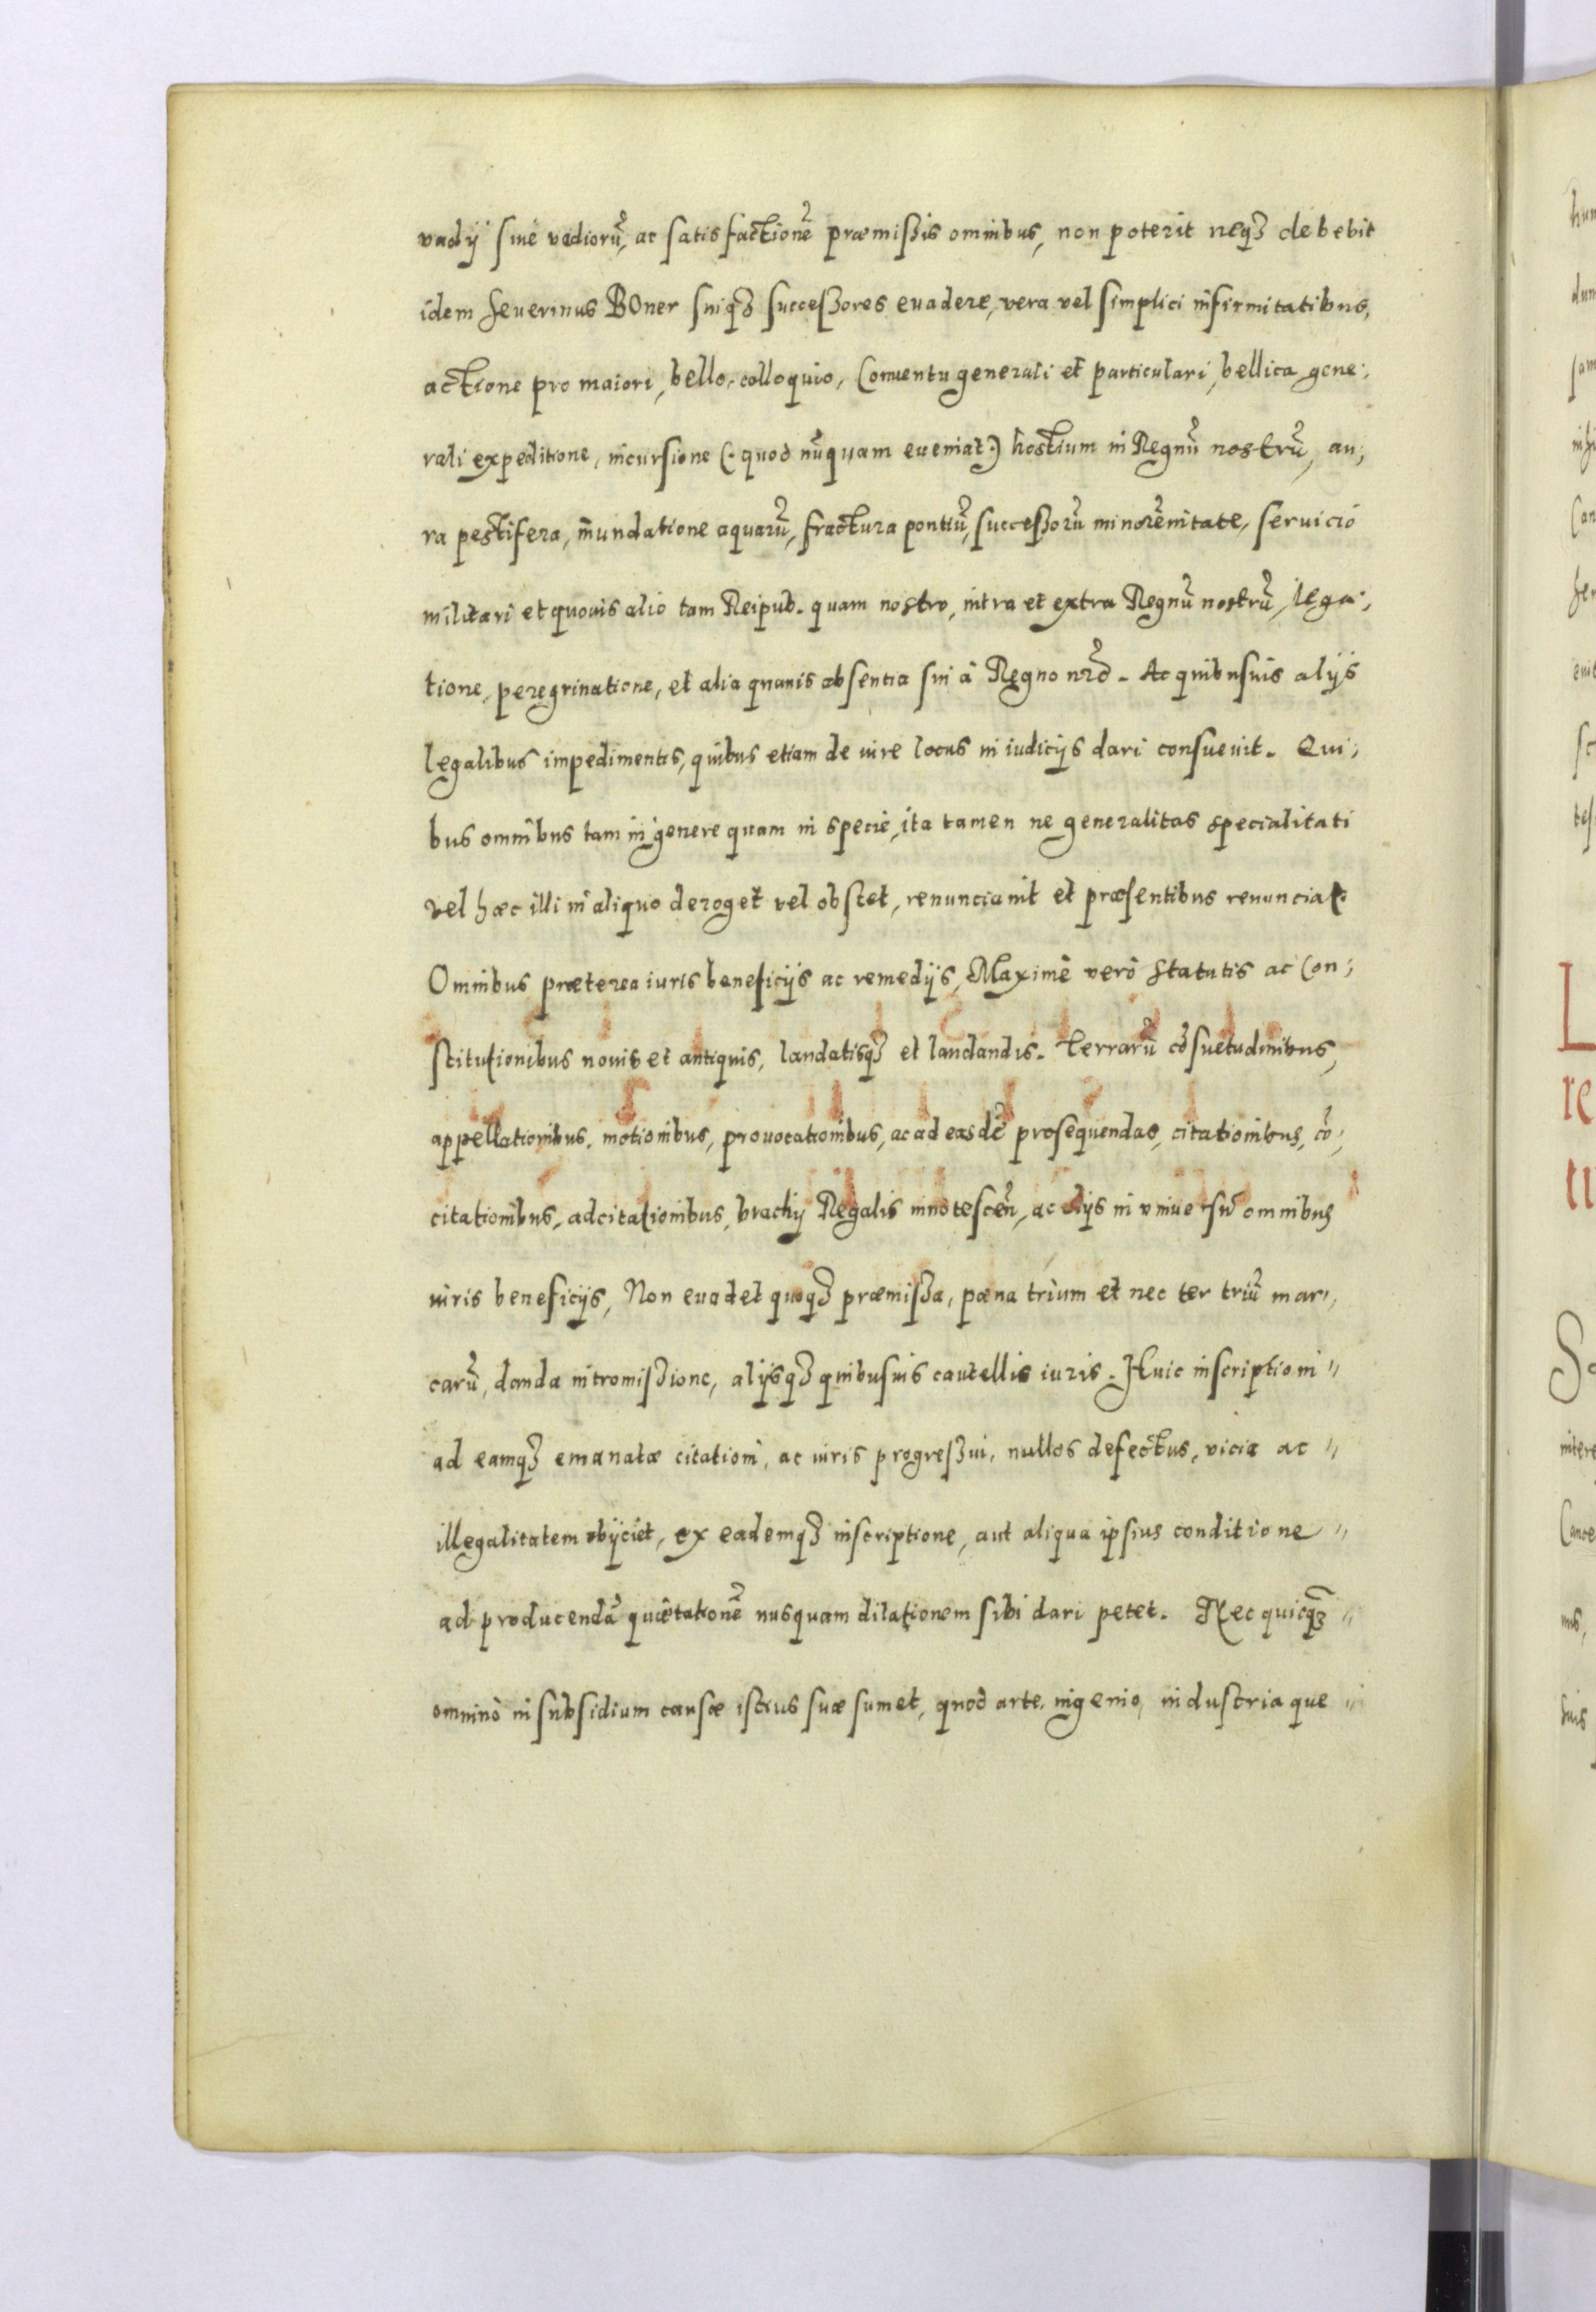 vadij siue vadiorũ, ac satisfactionẽ præmißis omnibus, non poterit neqȝ debebit
idem Seuerinus BOner suiqȝ succeßores euadere, vera vel simplici infirmitatibus,
actione pro maiori, bello, colloquio, Conuentu generali et particulari, bellica gene-
rali expeditione, incursione (quod nũquam eueniat) hostium in Regnũ nostrũ, au-
ra pestifera, inundatione aquarũ, fractura pontiũ, succeßorũ minorẽnitate, seruicio
militari et quouis alio tam Reipub. quam nostro, intra et extra Regnũ nostrũ, lega-
tione, peregrinatione, et alia quauis absentia sui à Regno nrõ. Ac quibusuis alijs
legalibus impedimentis, quibus etiam de iure locus in iudicijs dari consueuit. Qui-
bus omnibus tam in genere quam in specie, ita tamen ne generalitas specialitati
vel hæc illi in aliquo deroget vel obstet, renunciauit et præsentibus renunciat.
Omnibus præterea iuris beneficijs ac remedijs, Maximè verò Statutis ac Con-
stitutionibus nouis et antiquis, laudatisqȝ et laudandis. terrarũ cõsuetudinibus,
appellationibus, motionibus, prouocationibus, ac ad easdẽ prosequendas, citationibus, cõ-
citationibus, adcitationibus, brachij Regalis innotescẽn, ac alijs in vniuersũ omnibus
iuris beneficijs, Non euadet quoqȝ præmißa, pæna trium et nec ter triũ mar-
carũ, danda intromißione, alijsqȝ quibusuis cautellis iuris. Huic inscriptioni
ad eamqȝ emanatæ citationi, ac iuris progreßui, nullos defectus, vicia ac
illegalitatem obijciet, ex eademqȝ inscriptione, aut aliqua ipsius conditione
ad producendã quietationẽ nusquam dilationem sibi dari petet. Nec quicqȝ
omninò in subsidium causæ istius suæ sumet, quod arte, ingenio, industria que